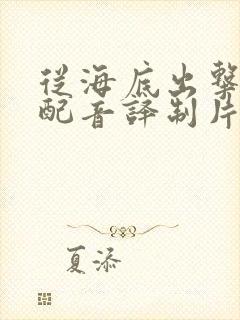 從海底出擊
配音譯制片
夏添